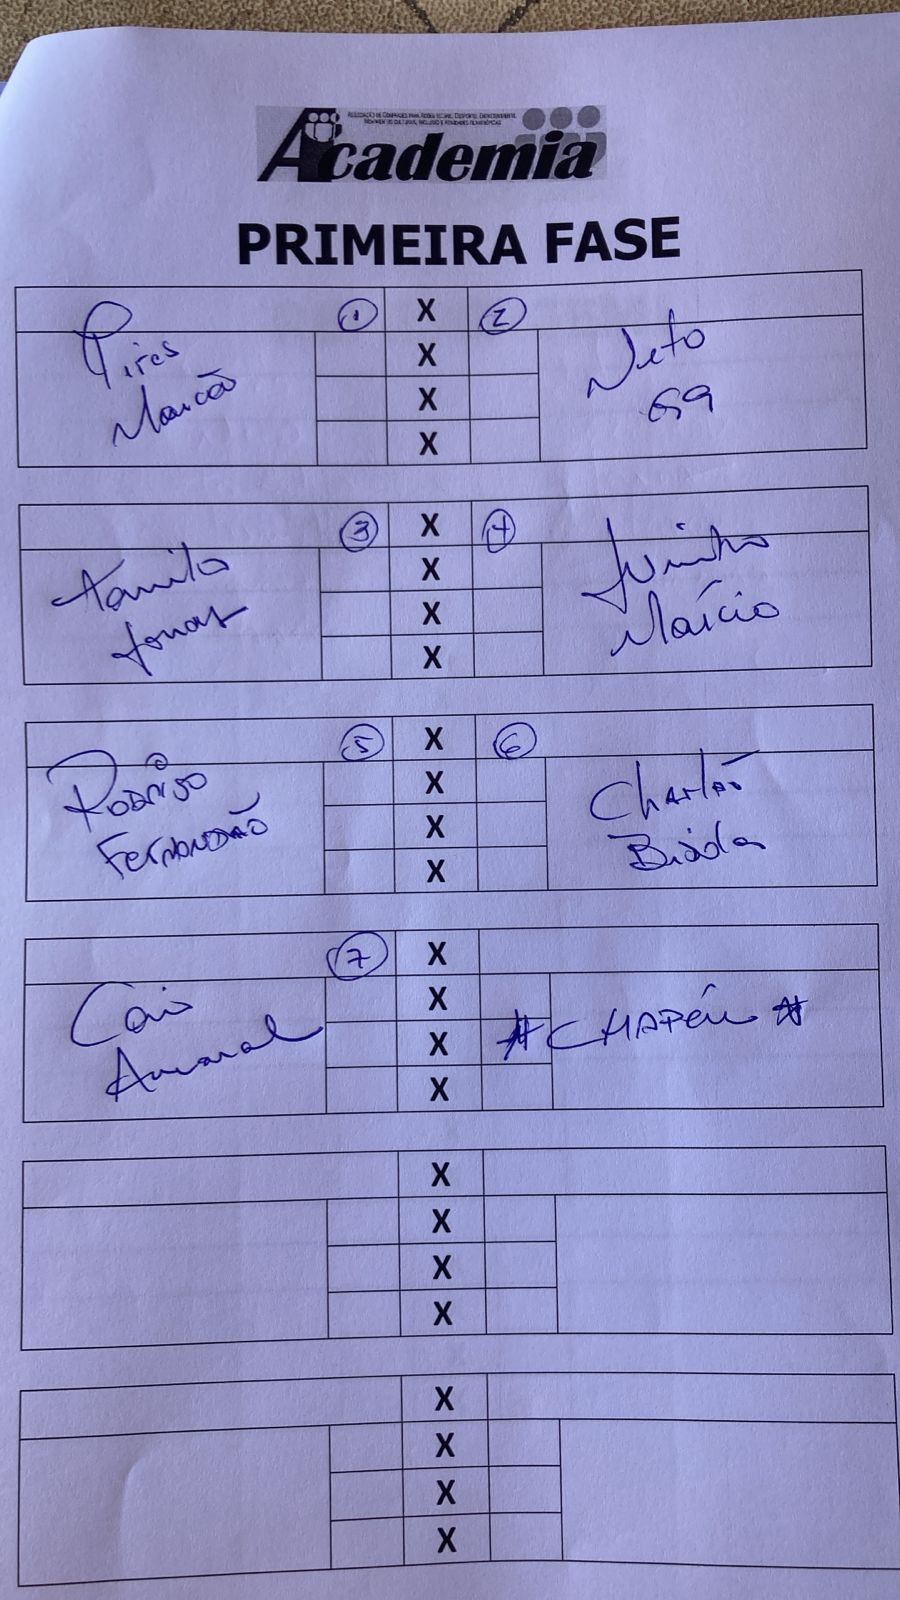 Academia
PRIMEIRA FASE
1 X 2
Pires X Neto
Marcão X GG
X
3 X 4
X Juninho
Jonas X Márcio
X
5 X 6
Rodrigo X Charlão
FERNANDÃO X
X
7 X
Caio X
Amaral X # CHAPÉU #
X
X
X
X
X
X
X
X
X